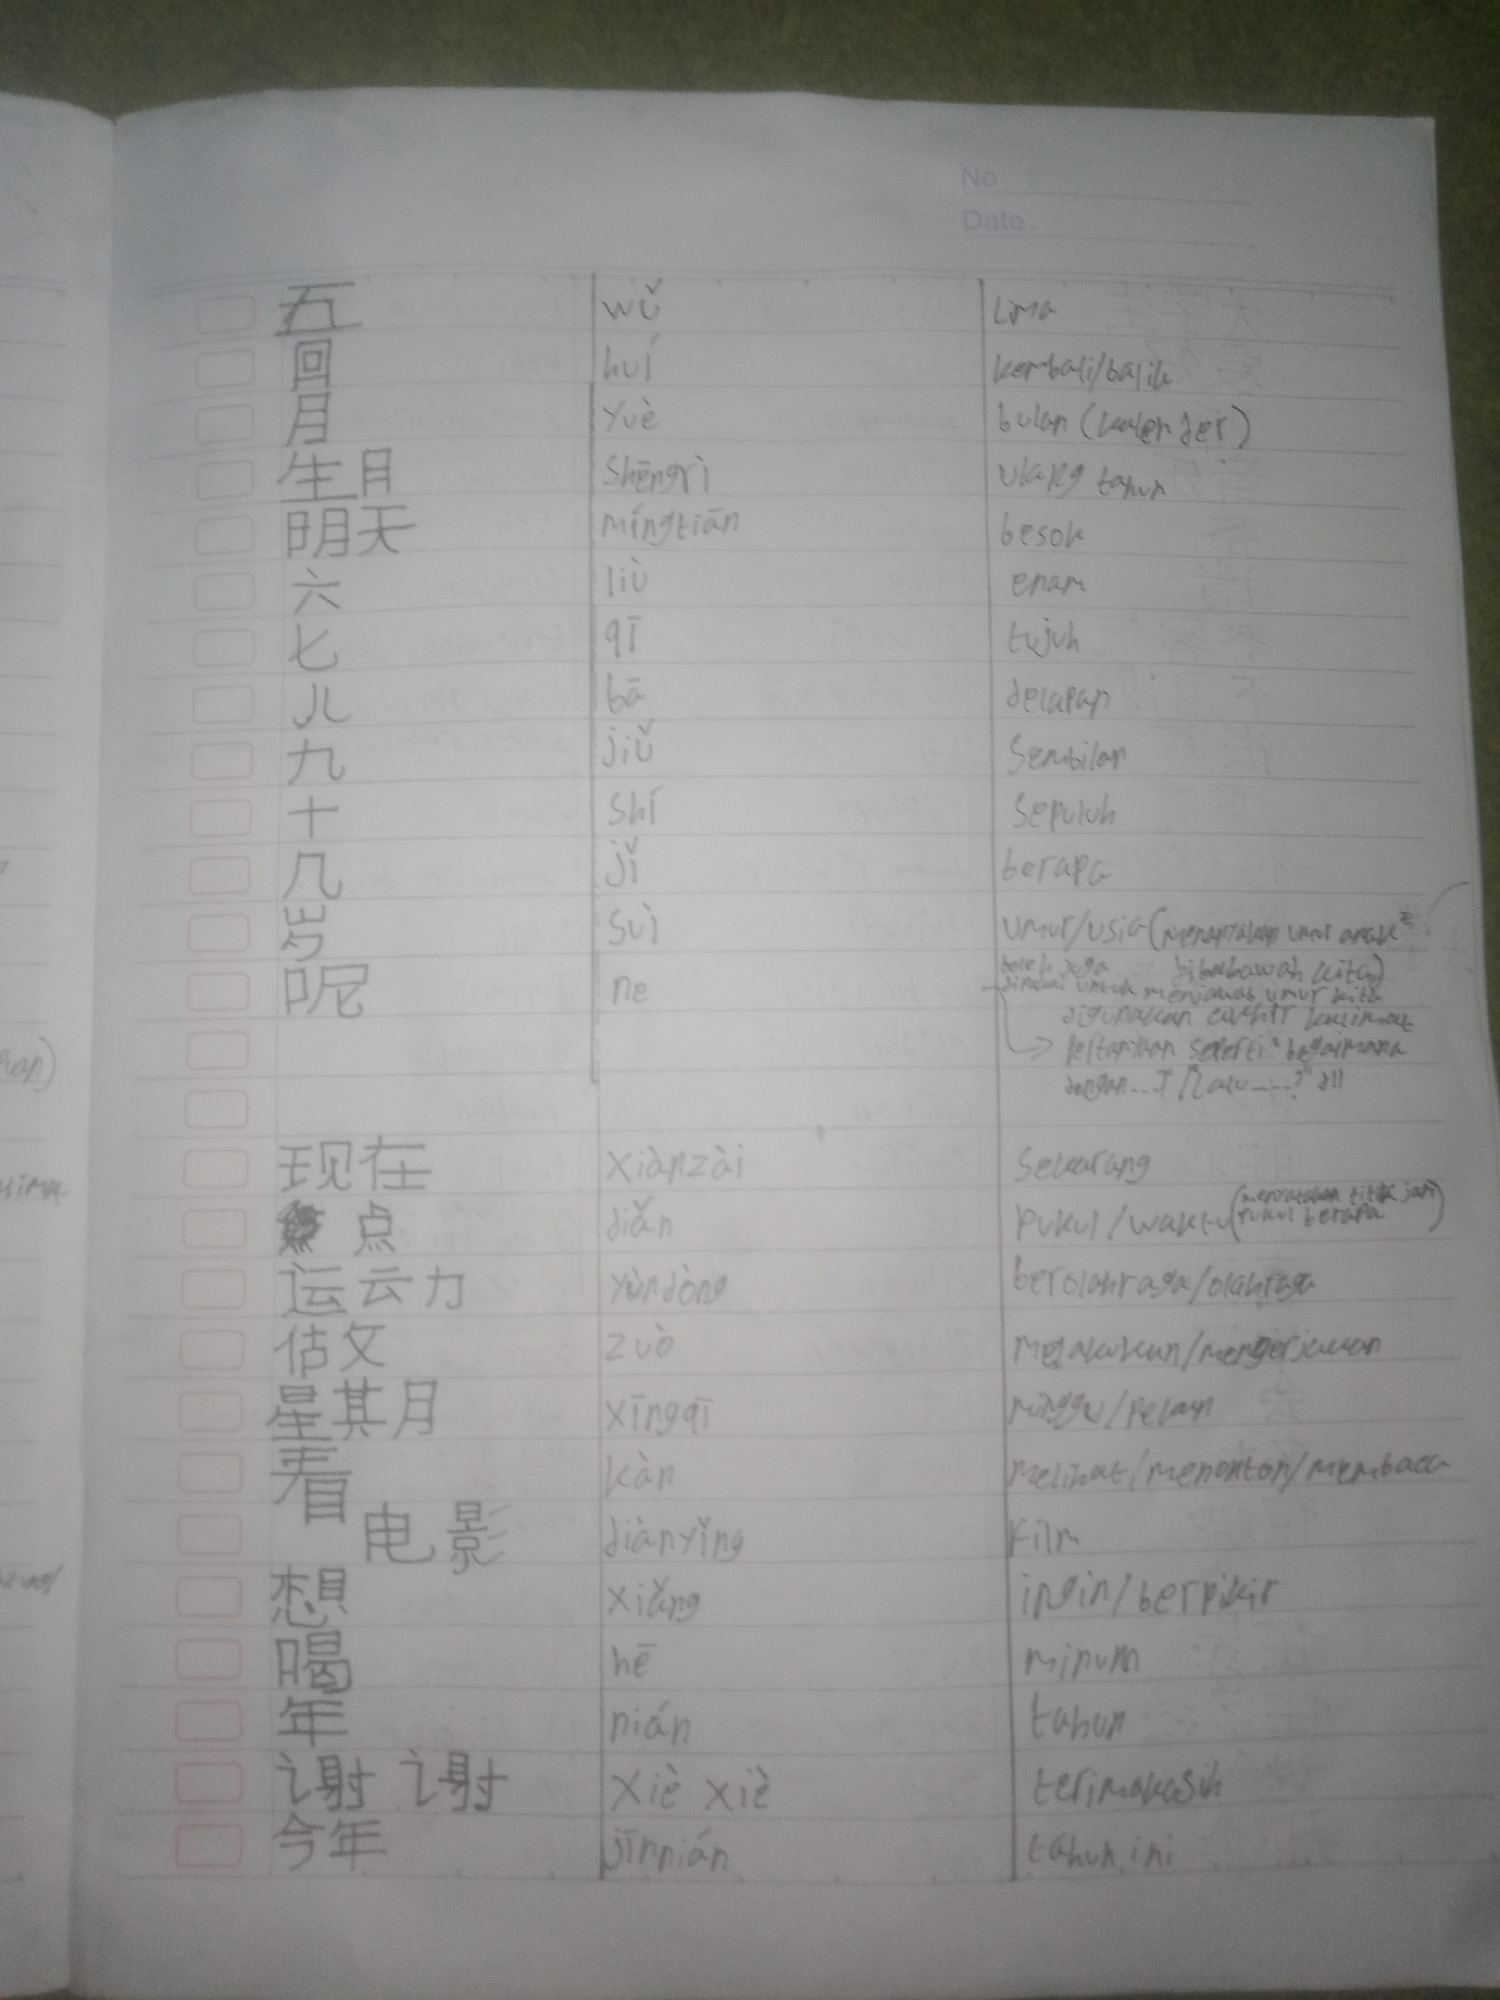 No :
Date :
五 wǔ Lima
回 huí kembali/balik
月 yuè bulan (kalender)
生月 Shēngrì ulang tahun
明天 míngtiān besok
六 liù enam
七 qī tujuh
八 bā delapan
九 jiǔ Sembilan
十 Shí Sepuluh
几 jǐ berapa
岁 Suì umur/usia (menanyakan umur anak²
boleh juga dibawah kita)
呢 ne dipakai untuk menjawab umur kita
digunakan akhir kalimat
Pertanyaan seperti "bagaimana
dengan...?/Lalu ----?" dll
现在 xiànzài Sekarang
点 diǎn Pukul/waktu (menyatakan titik jam/
pukul berapa)
运云力 yùndòng berolahraga/olahraga
估攵 zuò melakukan/mengerjakan
星其月 xīngqī minggu/Pekan
看 kàn melihat/menonton/membaca
电影 diànyǐng Film
想 xiǎng ingin/berpikir
喝 hē minum
年 nián tahun
讠射 讠射 xiè xiè terimakasih
今年 jīnnián tahun ini